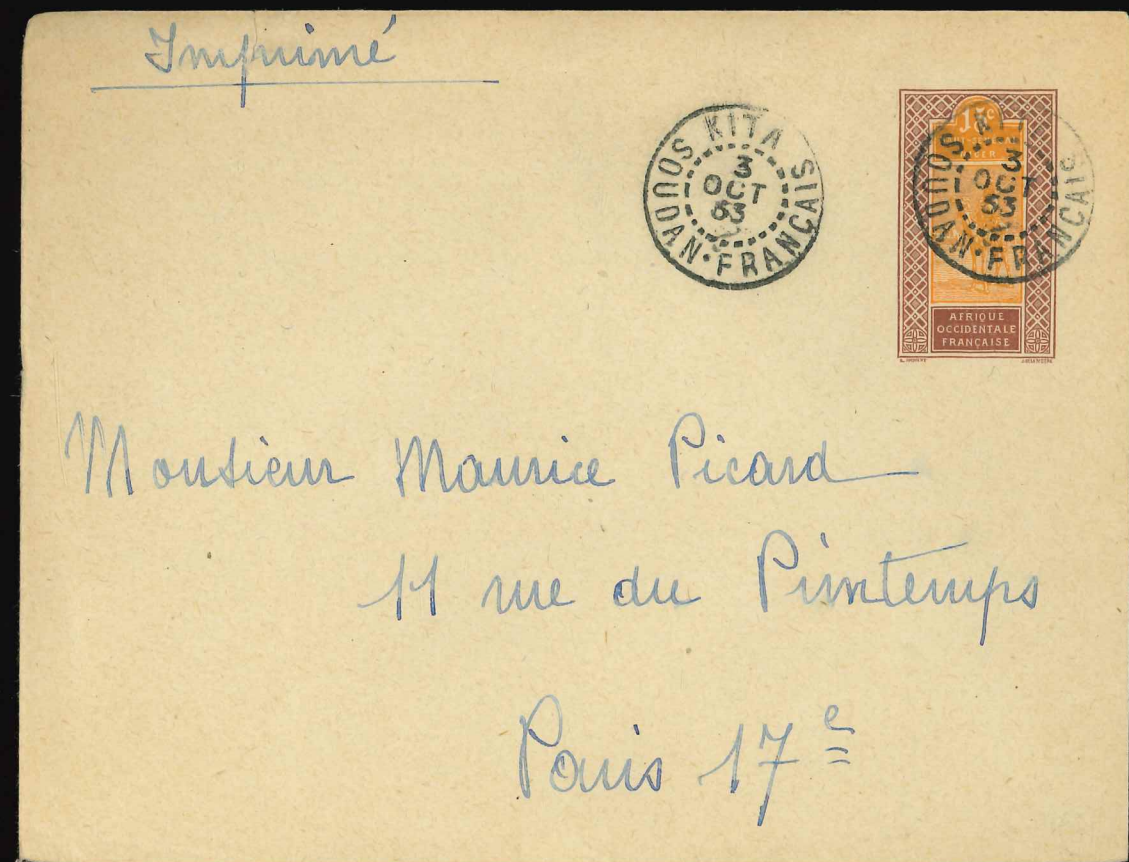 Imprimé
KITA
3
OCT
53
SOUDAN·FRANÇAIS
15c
3
OCT
53
SOUDAN·FRANÇAIS
AFRIQUE
OCCIDENTALE
FRANÇAISE
Monsieur Maurice Picard
11 rue du Printemps
Paris 17e